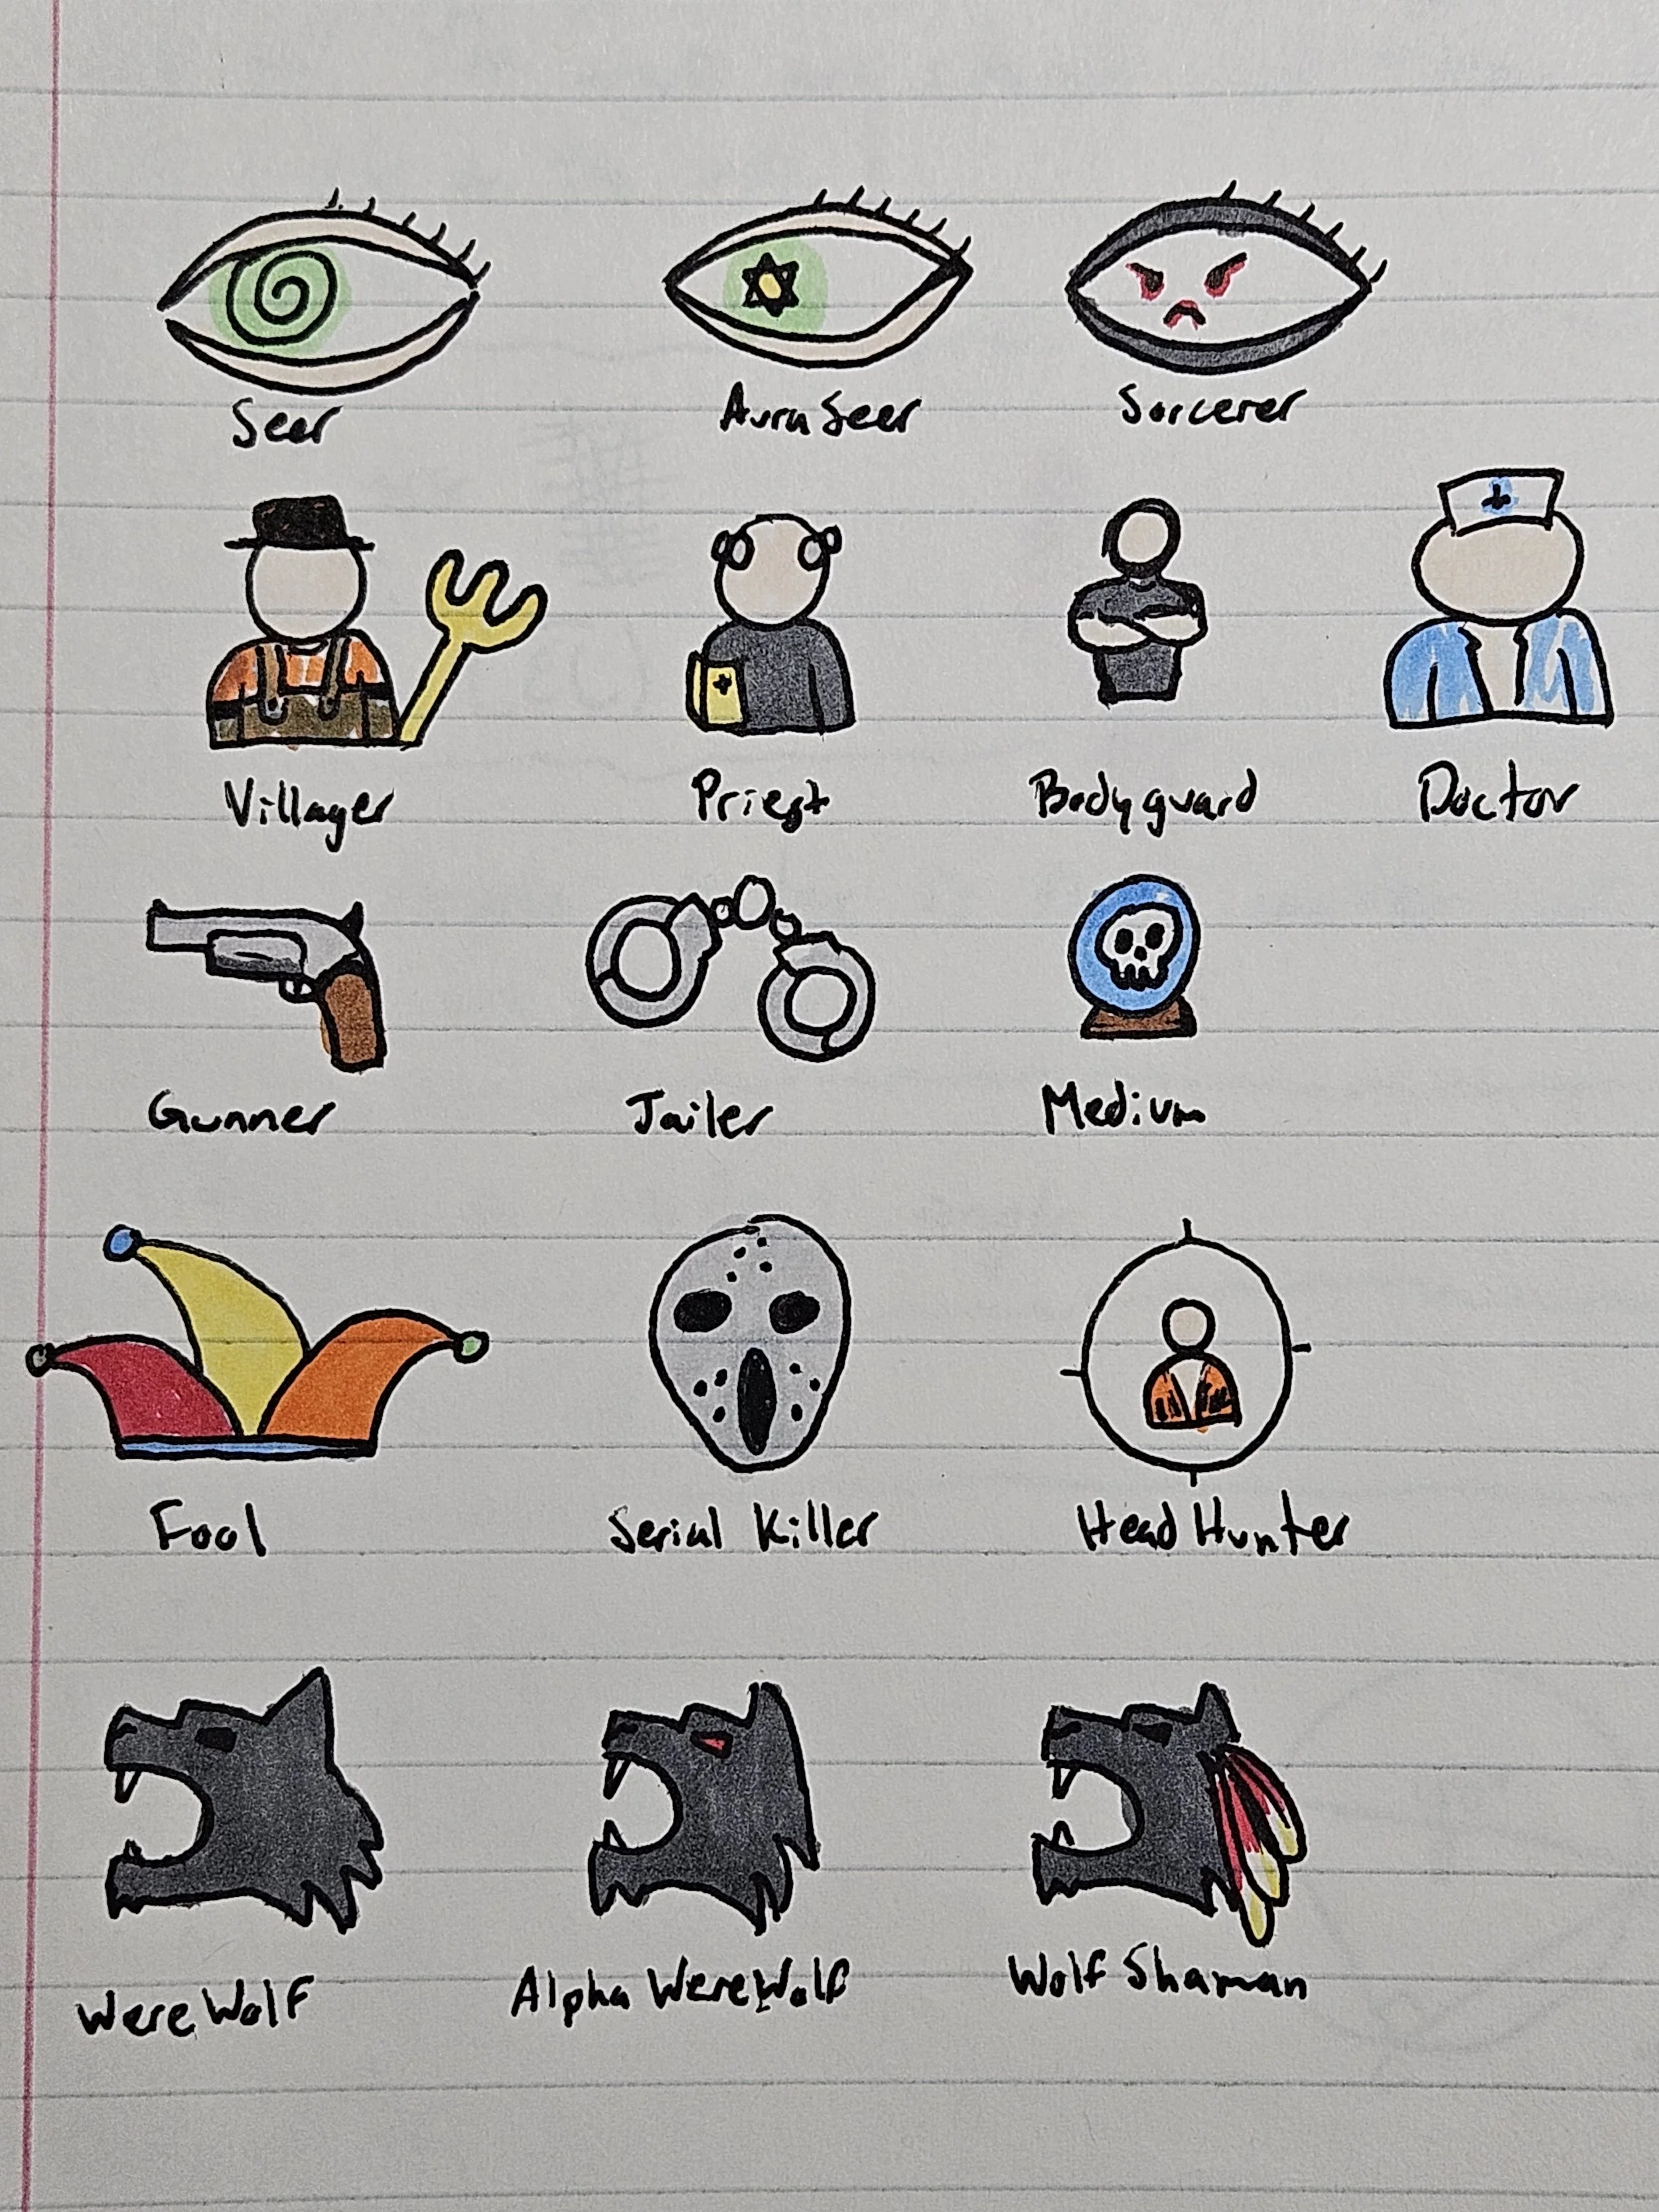 Seer Aura Seer Sorcerer
Villager Priest Bodyguard Doctor
Gunner Jailer Medium
Fool Serial Killer Head Hunter
WereWolf Alpha WereWolf Wolf Shaman